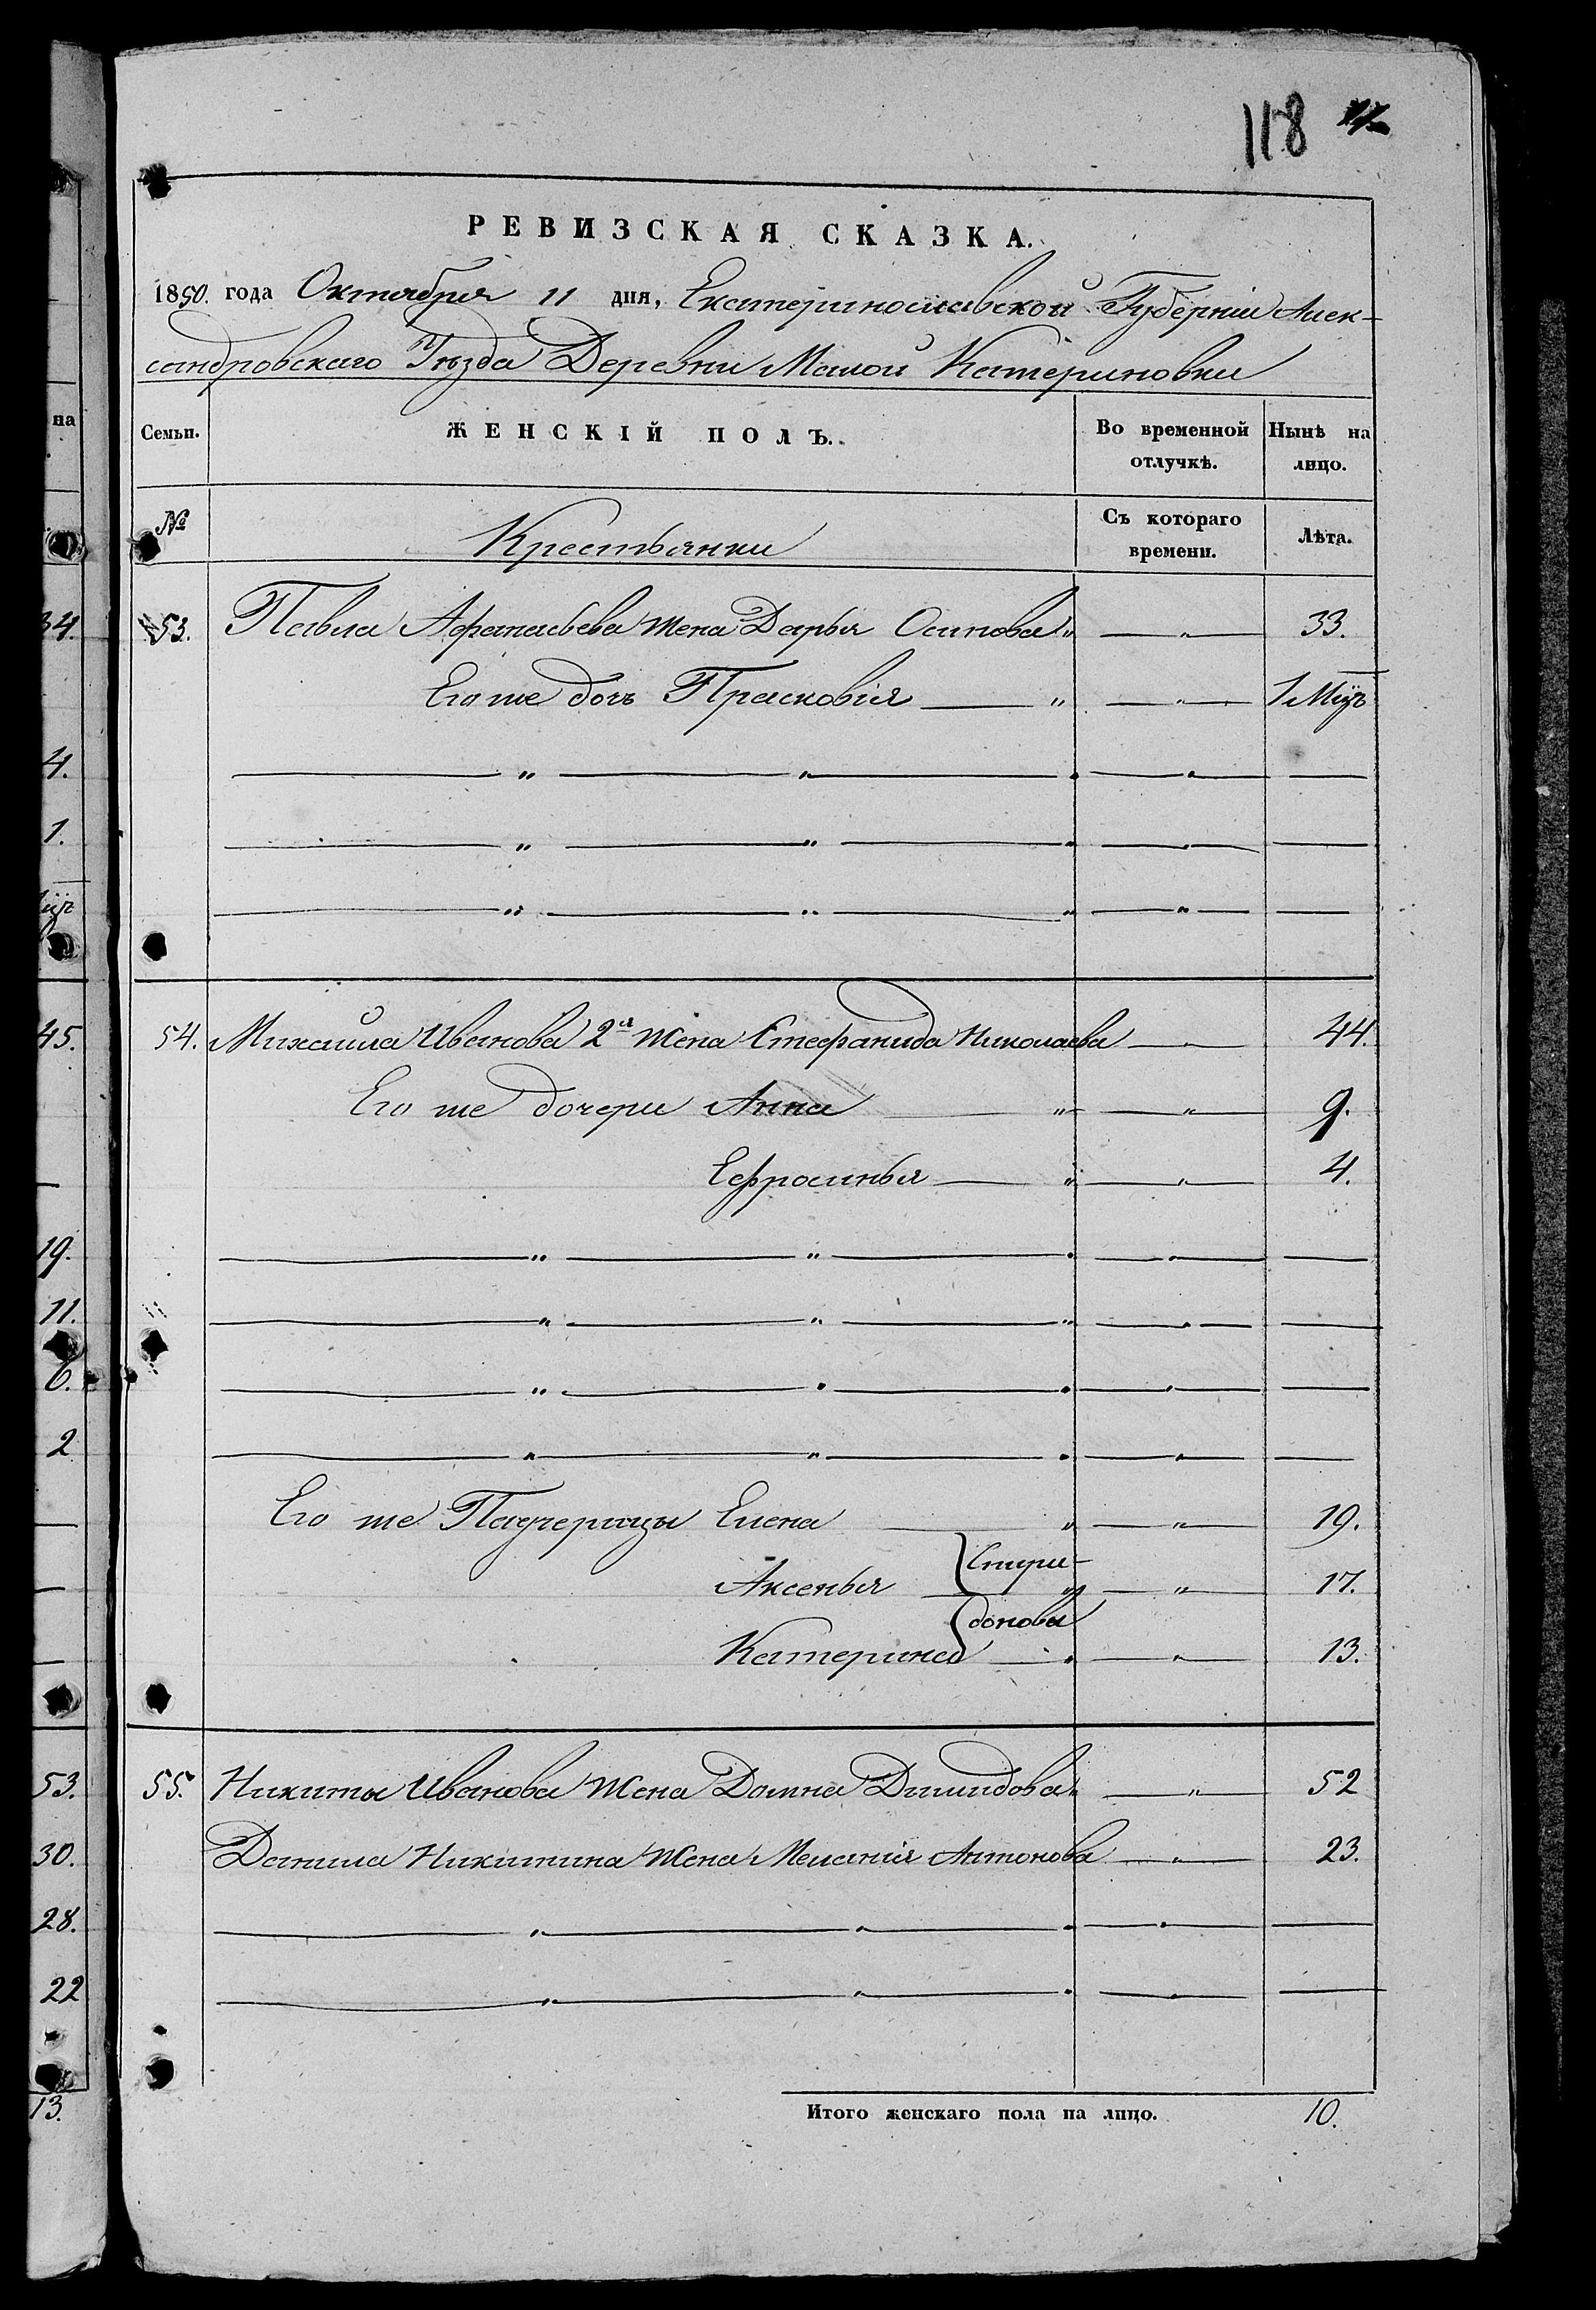 118
РЕВИЗСКАЯ СКАЗКА.
1850. года Октября 11 дня, Екатеринославской Губерніи Алек-
сандровскаго Уѣзда Деревни Малой Катериновки
на
Семьи. ЖЕНСКІЙ ПОЛЪ. Во временной отлучкѣ. Нынѣ на лицо.
№ Крестьянки Съ котораго времени. Лѣта.
34. 53. Павла Афанасьева жена Дарья Осипова „ — „ — 33.
Его же дочь Прасковія — „ — „ — 1 Мцъ
4.
1.
45. 54. Михайла Иванова 2я жена Стефанида Николаева — „ — 44.
Его же дочери Анна — „ — „ — 9.
Ефросинья — „ — „ — 4.
19.
11.
6.
2
Его же Падчерицы Елена — „ — „ — 19.
Аксенья { Спири- — „ — 17.
доновы
Катерина — „ — „ — 13.
53. 55. Никиты Иванова жена Домна Димидова „ — „ — 52
30. Данила Никитина жена Меланія Антонова — „ — 23.
28.
22
13. Итого женскаго пола на лицо. 10.